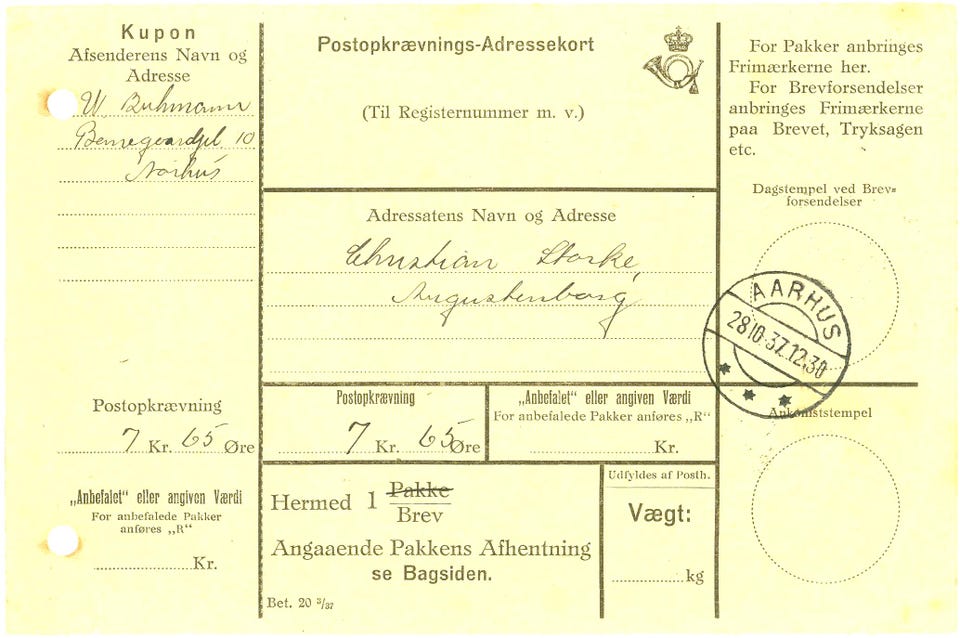 Kupon
Afsenderens Navn og
Adresse
W. Buhmann
10
Aarhus
Postopkrævning
7 Kr. 65 Øre
„Anbefalet“ eller angiven Værdi
For anbefalede Pakker
anføres „R“
Kr.
Postopkrævnings-Adressekort
(Til Registernummer m. v.)
Adressatens Navn og Adresse
Christian Storke,
Augustenborg
Postopkrævning
7 Kr. 65 Øre
„Anbefalet“ eller angiven Værdi
For anbefalede Pakker anføres „R“
Kr.
Hermed 1 Pakke
Brev
Angaaende Pakkens Afhentning
se Bagsiden.
Bet. 20 3/37
Udfyldes af Posth.
Vægt:
kg
For Pakker anbringes
Frimærkerne her.
For Brevforsendelser
anbringes Frimærkerne
paa Brevet, Tryksagen
etc.
Dagstempel ved Brev=
forsendelser
AARHUS
28.10.37.12.30
Ankomststempel